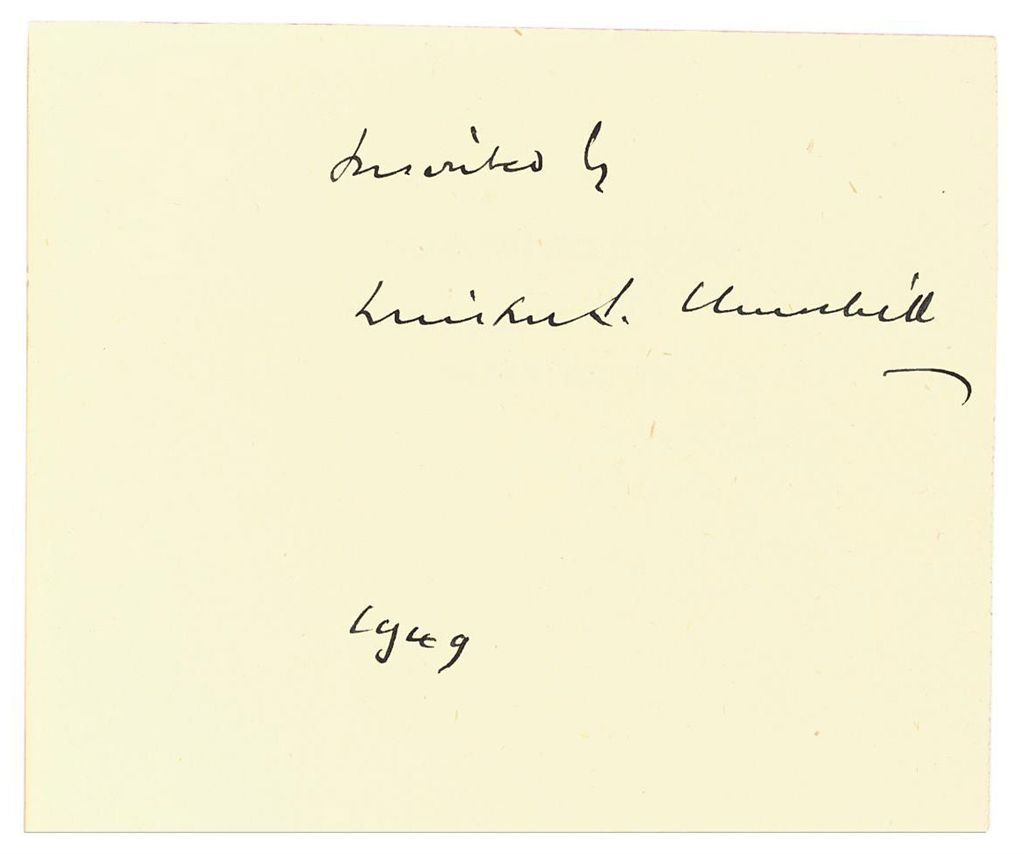 Inscribed by
Winston S. Churchill
1949